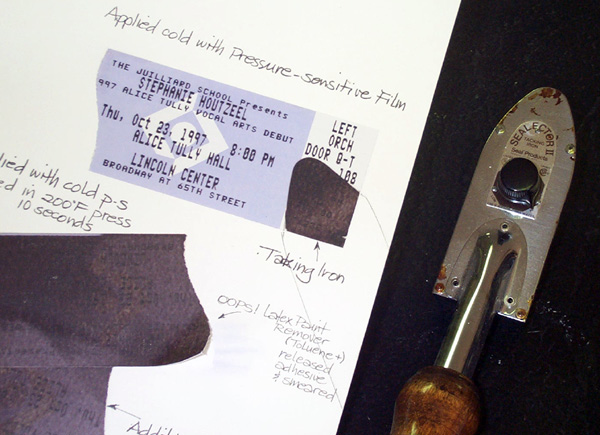 Applied cold with Pressure-sensitive Film
THE JUILLIARD SCHOOL presents
STEPHANIE HOUTZEEL
997 ALICE TULLY VOCAL ARTS DEBUT
Thu, Oct 23, 1997 8:00 PM
ALICE TULLY HALL
LINCOLN CENTER
BROADWAY AT 65TH STREET
LEFT
ORCH
DOOR O-T
108
lied with cold p-s
ed in 200°F press
10 seconds
Tacking Iron
OOPS! Latex Paint
Remover
(Toluene+)
released
adhesive
& smeared
Addi
SEALECTOR II
TACKING
IRON
Seal Products